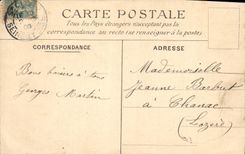 CARTE POSTALE
Tous les Pays étrangers n'acceptent pas la
correspondance au recto (se renseigner à la poste)
CORRESPONDANCE
ADRESSE
Bons baisers à tous
Georges Martin
Mademoiselle
Jeanne Barbut
à Chanac
(Lozère)